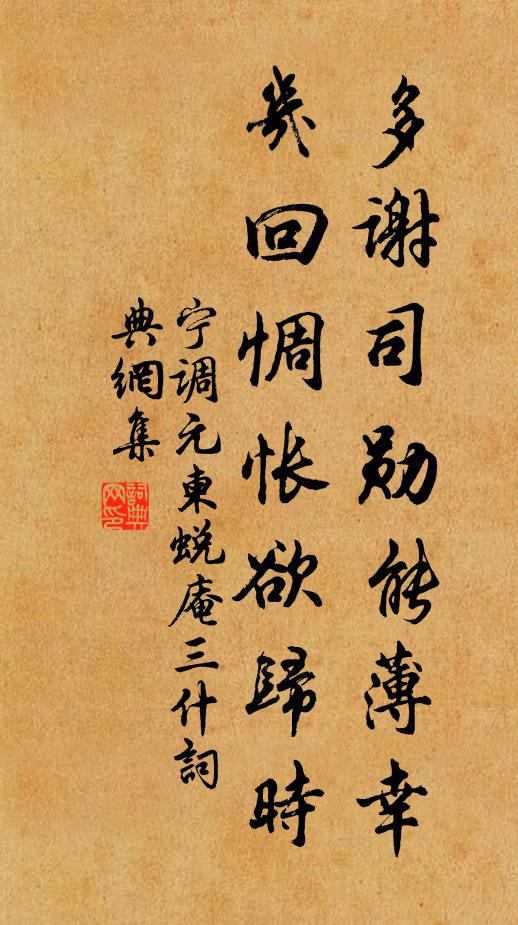 多谢司勋能薄幸
几回惆怅欲歸時
宁调元東蜕庵三什詞
典網集
詞典網印